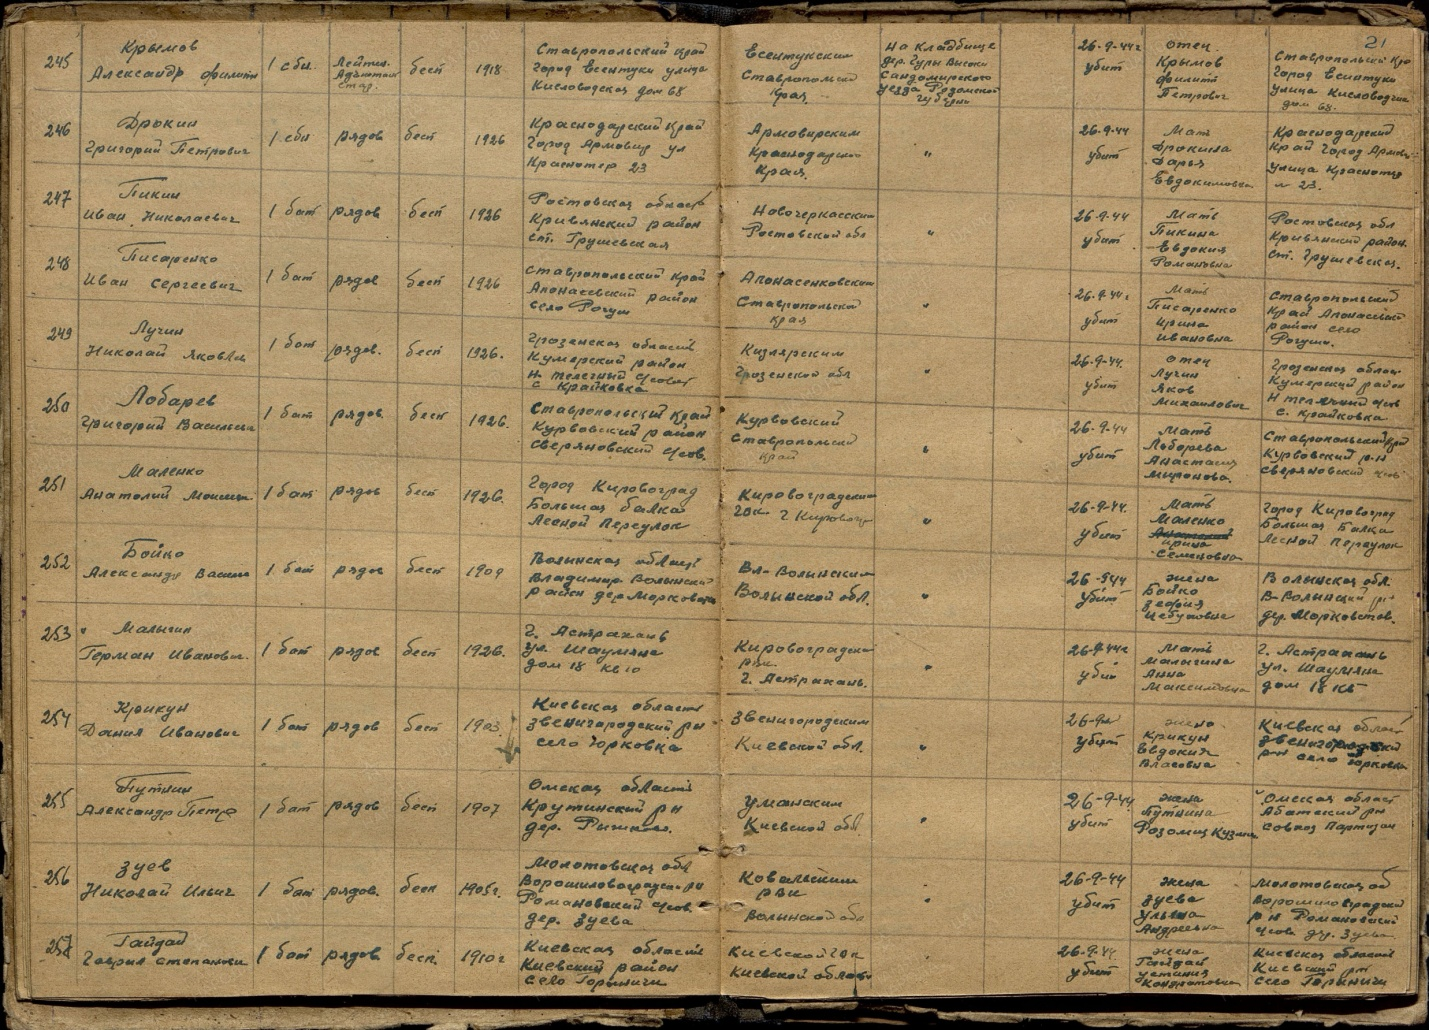 21
245
Крымов
Александр Филипп
1 сбн.
Лейтен.
Адъютант
Стар.
бесп
1918
Ставропольский край
город Ессентуки улица
Кисловодская дом 68
Есентукским
Ставропольский
Края.
На кладбище
дер. Гуры Высоки
Сандомирского
уезда Родомской
губерни
26-9-44г
убит
отец
Крымов
Филипп
Петрович
Ставропольский кра
город Есентуки
улица Кисловодская
дом 68.
246
Дрокин
Григорий Петрович
1 сбн
рядов
бесп
1926
Краснодарский край
город Армовир ул
23
Армовирским
Краснодарского
Края.
"
26-9-44
убит
Мать
Дрокина
Дарья
Евдокимовна
Краснодарский
Край город Армови
улица
№ 23.
247
Пикин
Иван Николаевич
1 бат
рядов
бесп
1926
Ростовская область
Кривянский район
ст. Грушевская
Новочеркасским
Ростовской обл
"
26-9-44
убит
Мать
Пикина
Евдокия
Романовна
Ростовская обл
Кривянский район.
ст. Грушевская.
248
Писаренко
Иван Сергеевич
1 бат
рядов
бесп
1926
Ставропольский край
район
село Рогули
Апонасенковским
Ставропольской
края
"
26-9-44г
убит
Мать
Писаренко
Ирина
Ивановна
Ставропольский
Край
район село
Рогули.
249
Лучин
Николай Яковлев
1 бат
рядов.
бесп
1926.
Грозенская область
район
с. Крайковка
Кизлярским
Грозенской обл
"
26-9-44.
убит
отец
Лучин
Яков
Михайлович
Грозенская област
район
с. Крайковка
250
Лобарев
Григорий Васильеви
1 бат
рядов.
бесп
1926.
Ставропольский край
Курвовский район
Сверяновский с/сов.
Курвовский
Ставропольский
край
"
26-9-44
убит
Мать
Лоборева
Анастасия
Мироновa.
Ставропольский край
Курвовский р-н
Сверяновский с/сов
251
Маленко
Анатолий
1 бат
рядов
бесп
1926.
Город Кировоград
Большая балка
Лесной Переулок
Кировоградским
г. Кировогр
"
26-9-44.
убит
Мать
Маленко
Ирина
Семеновна
город Кировоград
Большая Балка
Лесной Переулок
252
Бойко
Александр Василь
1 бат
рядов
бесп
1909
Волынская область
Владимир-Волынский
район дер.
Вл-Волынским
Волынской обл.
"
26-9-44
убит
жена
Бойко
Волынская обл.
В-Волынский р-н
дер.
253
Малыгин
Герман Иванович.
1 бат
рядов
бесп
1926.
г. Астрахань
ул. Шаумяна
дом 18 кв 10
Кировоградски
рвк
г. Астрахань.
"
26-9-44г
убит
Мать
Малыгина
Анна
Максимовна
г. Астрахань
ул. Шаумяна
дом 18 кв
254
Крикун
Данил Иванович
1 бат
рядов
бесп
1903.
Киевская область
Звенигородский рн
село Юрковка
Звенигородским
Киевской обл.
"
26-9-44
убит
жена
Крикун
Евдокия
Власовна
Киевская област
Звенигородский
р-н село Юрковка
255
Путнин
Александр Петро
1 бат
рядов
бесп
1907
Омская область
Крутинский рн
дер.
Уманским
Киевской обл.
"
26-9-44.
убит
жена
Путнина
Кузмин
Омская област
Абатский рн
Совхоз Партизан
256
Зуев
Николай Ильич
1 бат
рядов.
бесп
1905г.
Молотовская обл
Романовский с/сов.
дер. Зуева
Ковальским
рвк
Волынской обл
"
26-9-44
убит
жена
Зуева
Ульяна
Андреевна
Молотовская об
р н Романовский
с/сов дер. Зуева
257
Гайдай
Гаврил Степанови
1 бат
рядов
бесп.
1910г
Киевская область
Киевский район
село Горыничи
Киевской
Киевской област
"
26-9-44
убит
жена
Гайдай
Устиния
Кондратовна
Киевская область
Киевский рн
село Горыничи